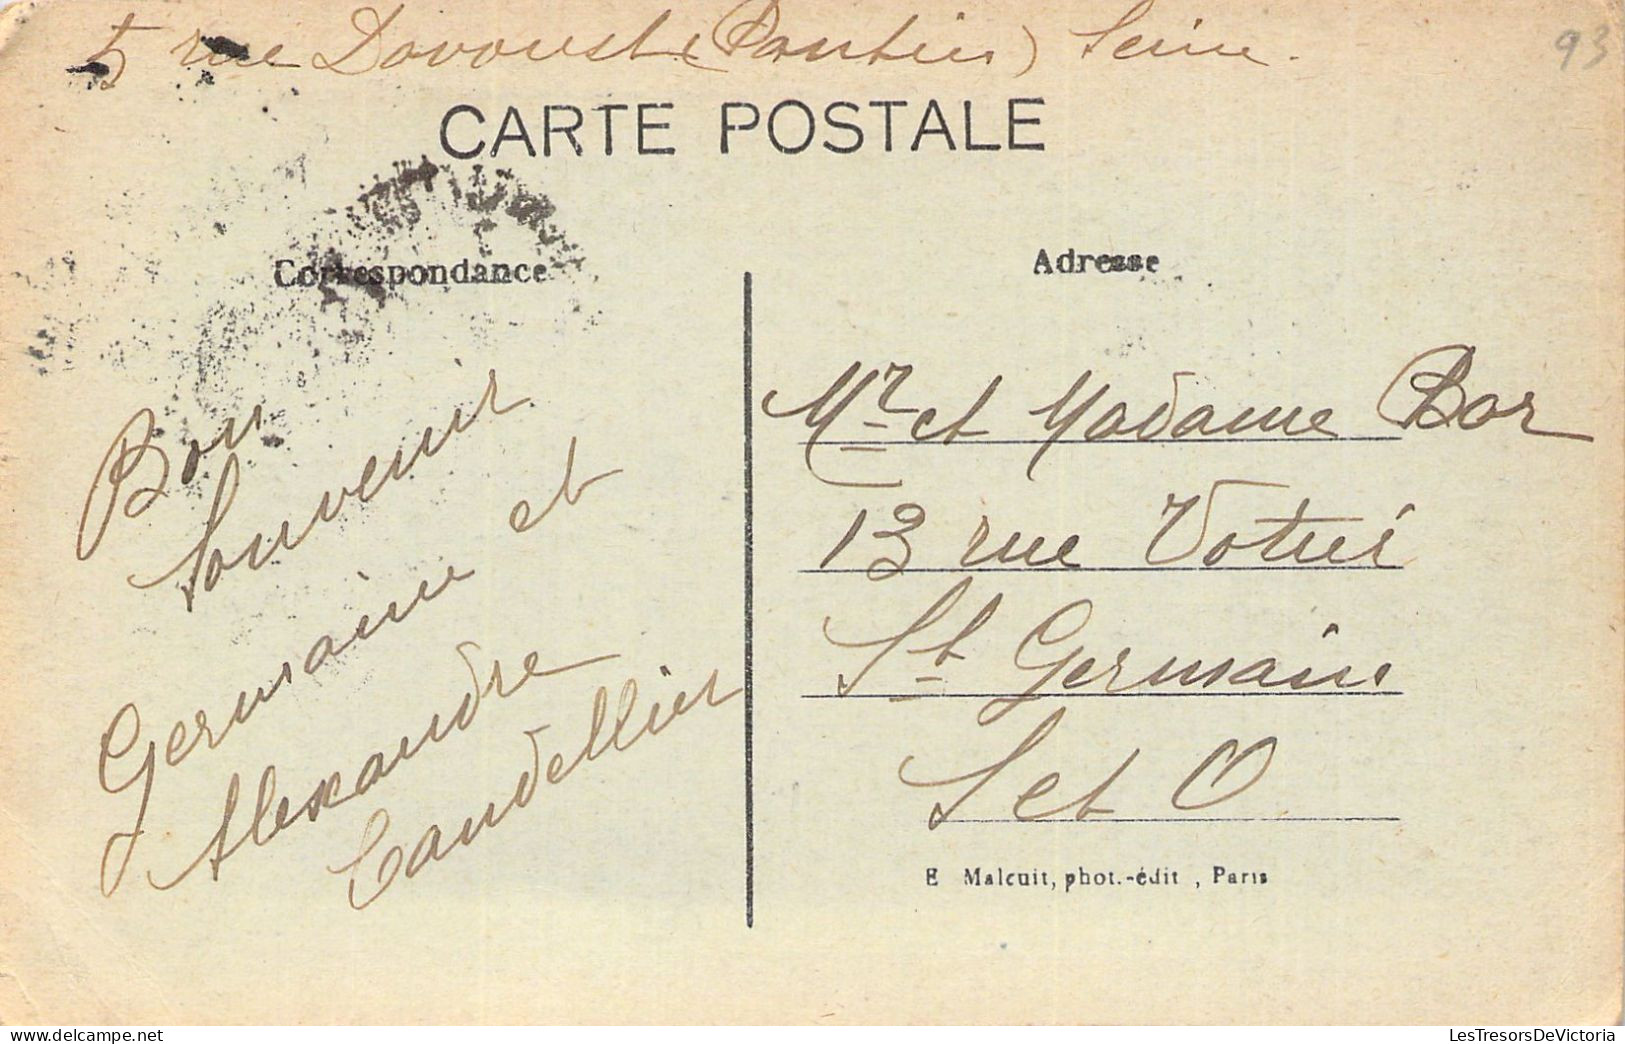 5 rue Davoust (Pantin) Seine.
93
CARTE POSTALE
Correspondance
Adresse
Bon
Souvenir
Germaine et
Alexandre
Candellier
Mr et Madame Bor
13 rue
St Germain
S et O
E Malcuit, phot.-édit, Paris
LesTresorsDeVictoria